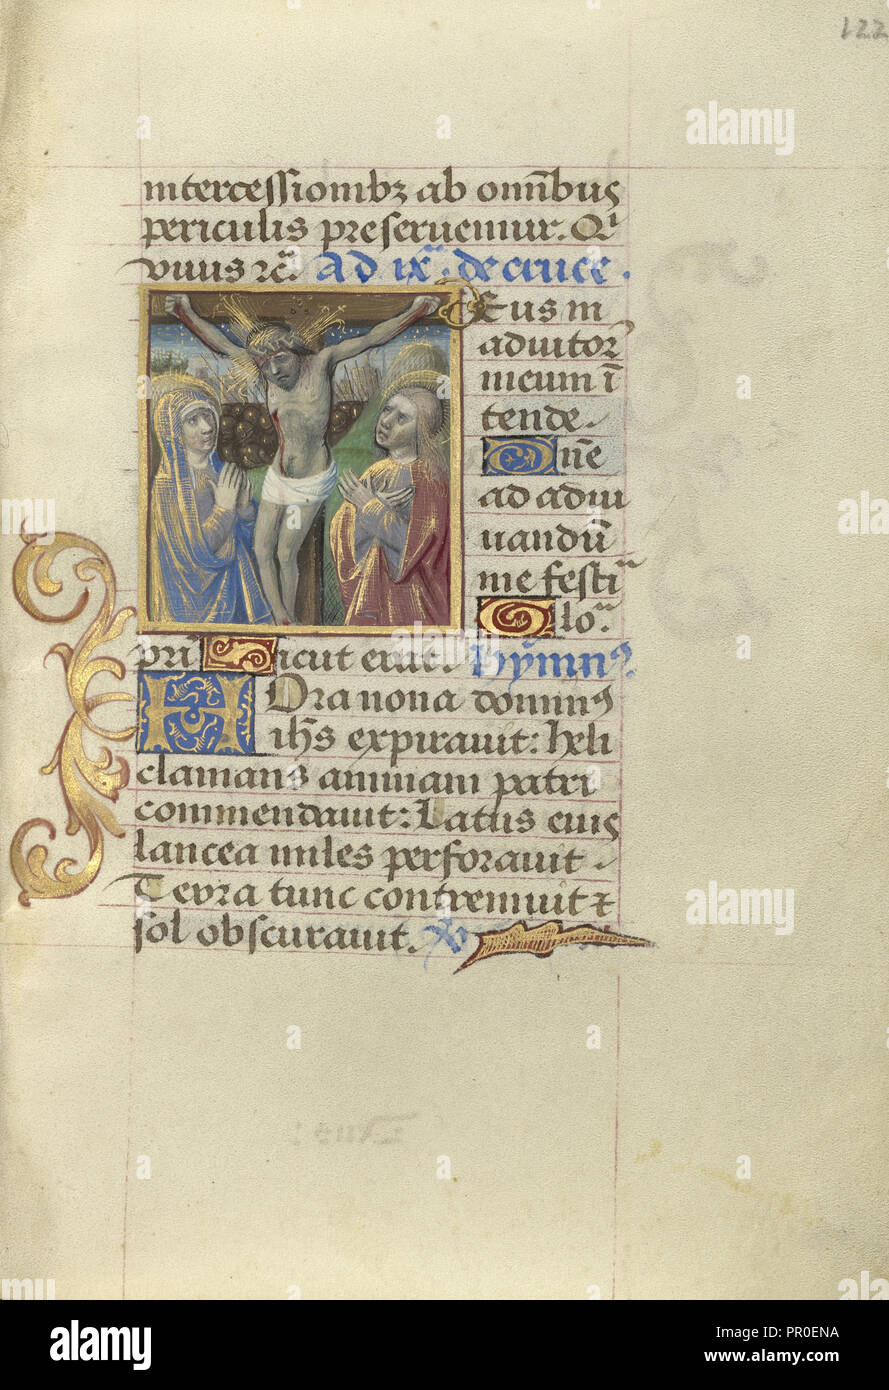 122
intercessionibꝫ ab om̄ibus
periculis preseruemur. Qͥ
viuis ⁊c̄. Ad ixᵃᵐ. de cruce.
Deus in
adiutoꝝ
meum ī
tende.
Dn̄e
ad adiu
uandū
me festīᵃ
Gloᵃ.
pr̄i Sicut erat. Hymnꝰ.
HOra nona dominꝰ
ih̄s expirauit: heli
clamans animam patri
commendauit: Latus eiꝰ
lancea miles perforauit.
Terra tunc contremuit ⁊
sol obscurauit.
alamy
Image ID: PR0ENA
www.alamy.com